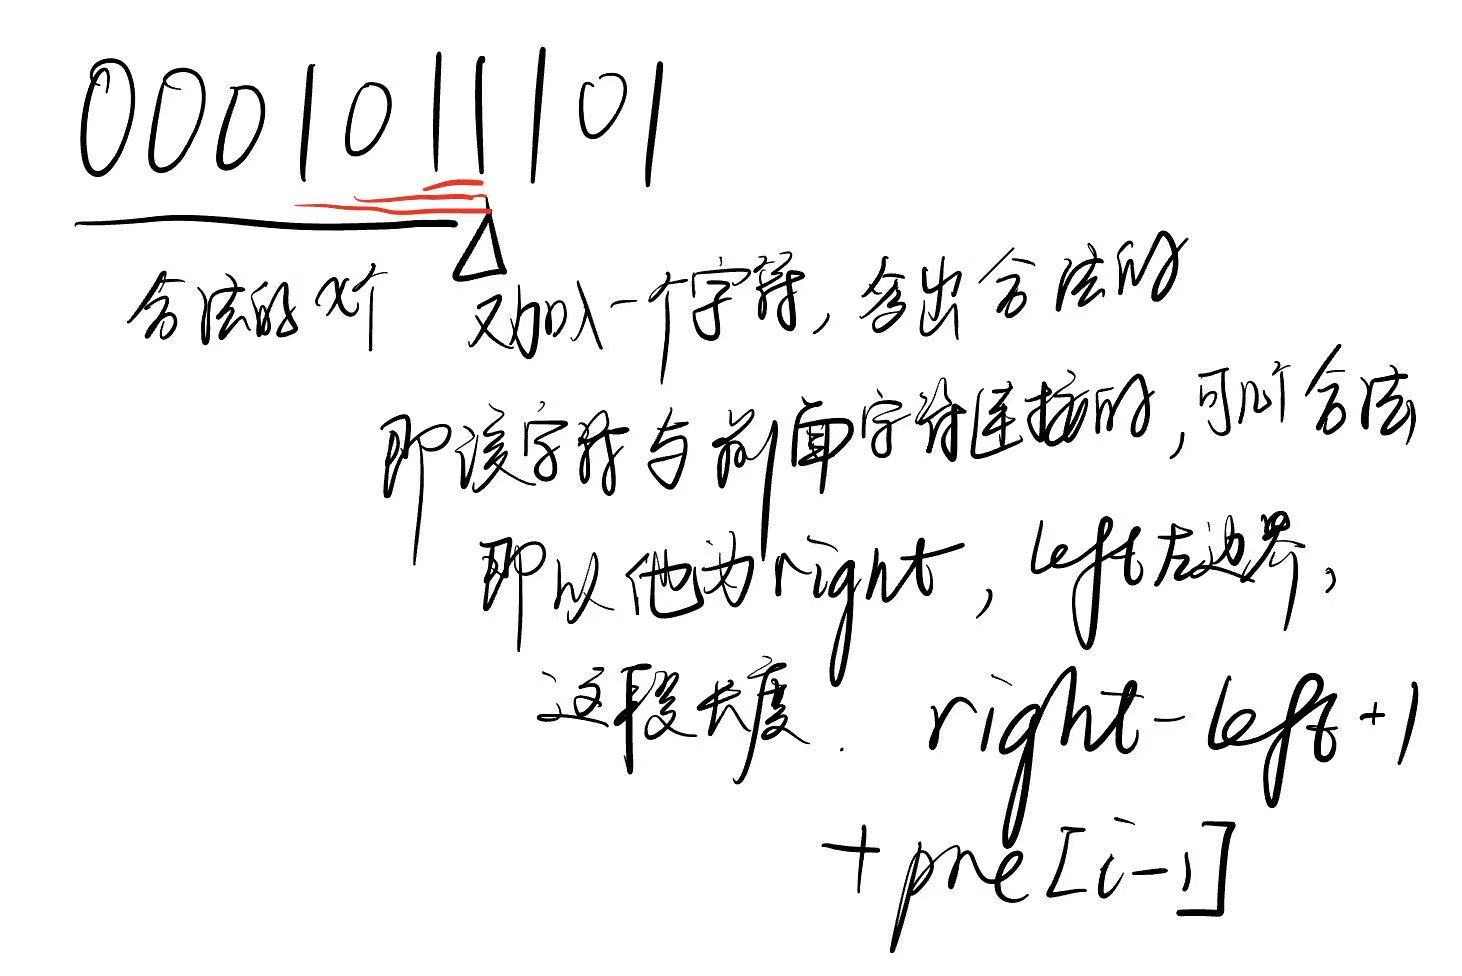 0001011101
合法的x个 又加入一个字符, 多出合法的
即该字符与前面字符连接的, 可几个合法
即以他为right, left左边界,
这段长度. right-left+1
+pre[i-1]